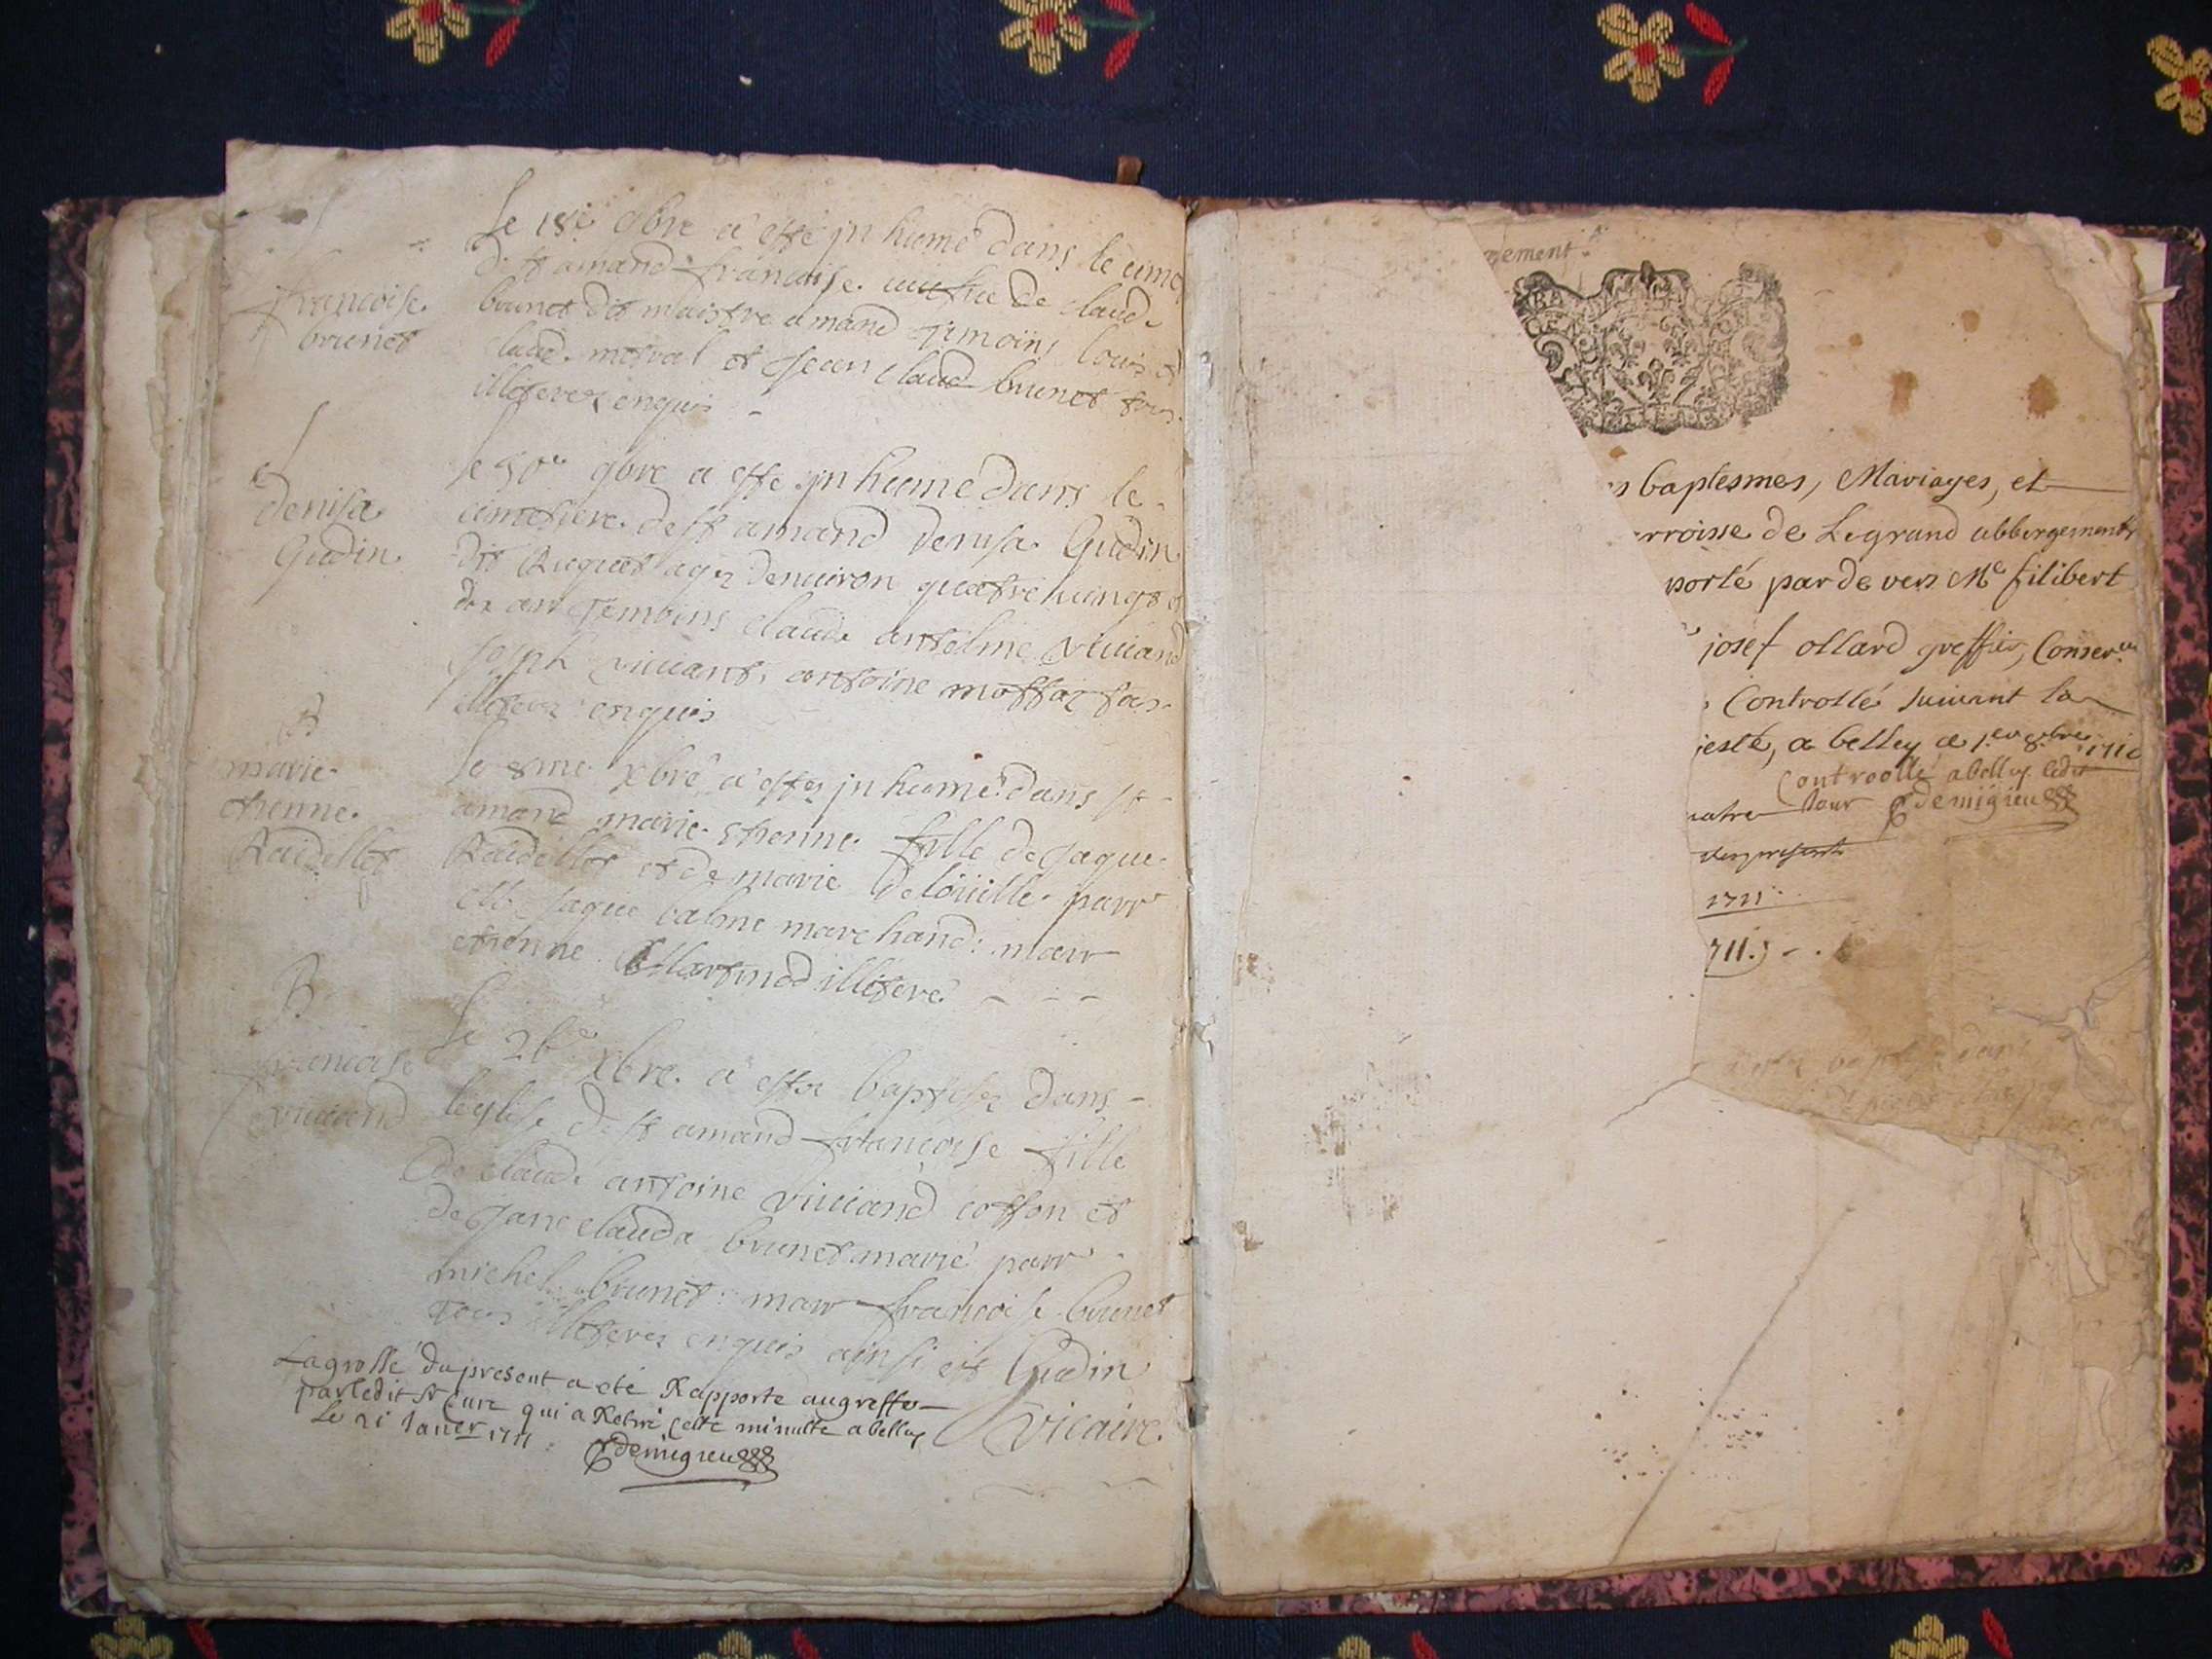 Le 18e 9bre a esté jnhumé dans le cime
de st amand francoise veufve de claude
francoise
brunet
brunet dit maistre amand temoins louis et
claude metral et jean claude brunet tous
illeterez enquis
le 30e 9bre a esté jnhumé dans le
denisa
Gudin
cimetiere de st amand denisa Gudin
dit Ruquet agez denuiron quatre uingt et
dix ans temoins claude antelme viuiand
joseph viuiant, antoine
illeterez enquis
B
marie
etienne
Raidellet
le 8me xbre a estez jnhumé dans st
amand marie etienne fille de jaque
Raidellet et de marie delouille parr
esté jaque balme marchand: marr
etienne Martinod illiteré
B
francoise
viuiand
Le 26e xbre a estez baptisez dans
leglise de st amand francoise fille
de claude antoine viuiand cotton et
de jane clauda brunet marié parr
michel brunet: marr francoise brunet
tous illeterez enquis ainsi est Gudin
vicaire
La grosse du present a eté Rapporté au greffe
par ledit Sr Curé qui a Retiré cette minutte a belley
Le 21 Janer 1711:
demigieu
gement
GEN
s baptesmes, Mariages, et
rroisse de Legrand abbergement
porté par de vers Me filibert
josef ollard greffier, Conserer
Controllé suivant la
jesté, a belley ce 1er 9bre 1710
Controollé a belley ledit
Jour demigieu
natre
des presents
1711
711.)